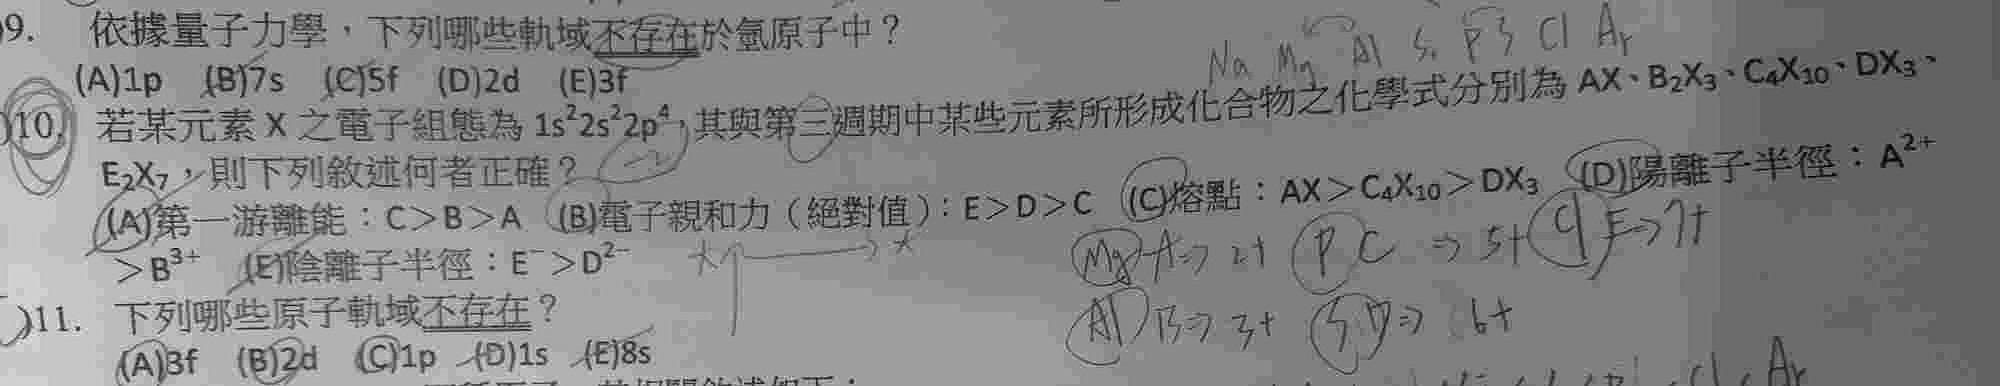 9. 依據量子力學，下列哪些軌域不存在於氫原子中？
(A)1p (B)7s (C)5f (D)2d (E)3f
Na Mg Al Si P S Cl Ar
10. 若某元素 X 之電子組態為 1s²2s²2p⁴，其與第三週期中某些元素所形成化合物之化學式分別為 AX、B₂X₃、C₄X₁₀、DX₃、
E₂X₇，則下列敘述何者正確？
-2
(A)第一游離能：C＞B＞A (B)電子親和力（絕對值）：E＞D＞C (C)熔點：AX＞C₄X₁₀＞DX₃ (D)陽離子半徑：A²⁺
＞B³⁺ (E)陰離子半徑：E⁻＞D²⁻
Mg A⇒2+ P C ⇒ 5+ Cl E⇒7+
Al B⇒3+ S D⇒ 6+
11. 下列哪些原子軌域不存在？
(A)3f (B)2d (C)1p (D)1s (E)8s
Cl Ar